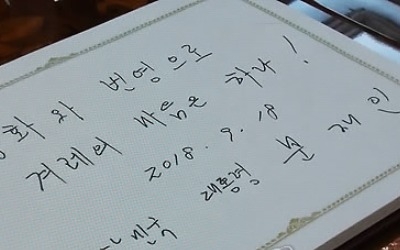 화와 번영으로
겨레의 마음은 하나!
2018. 9. 18
민국 대통령 문재인